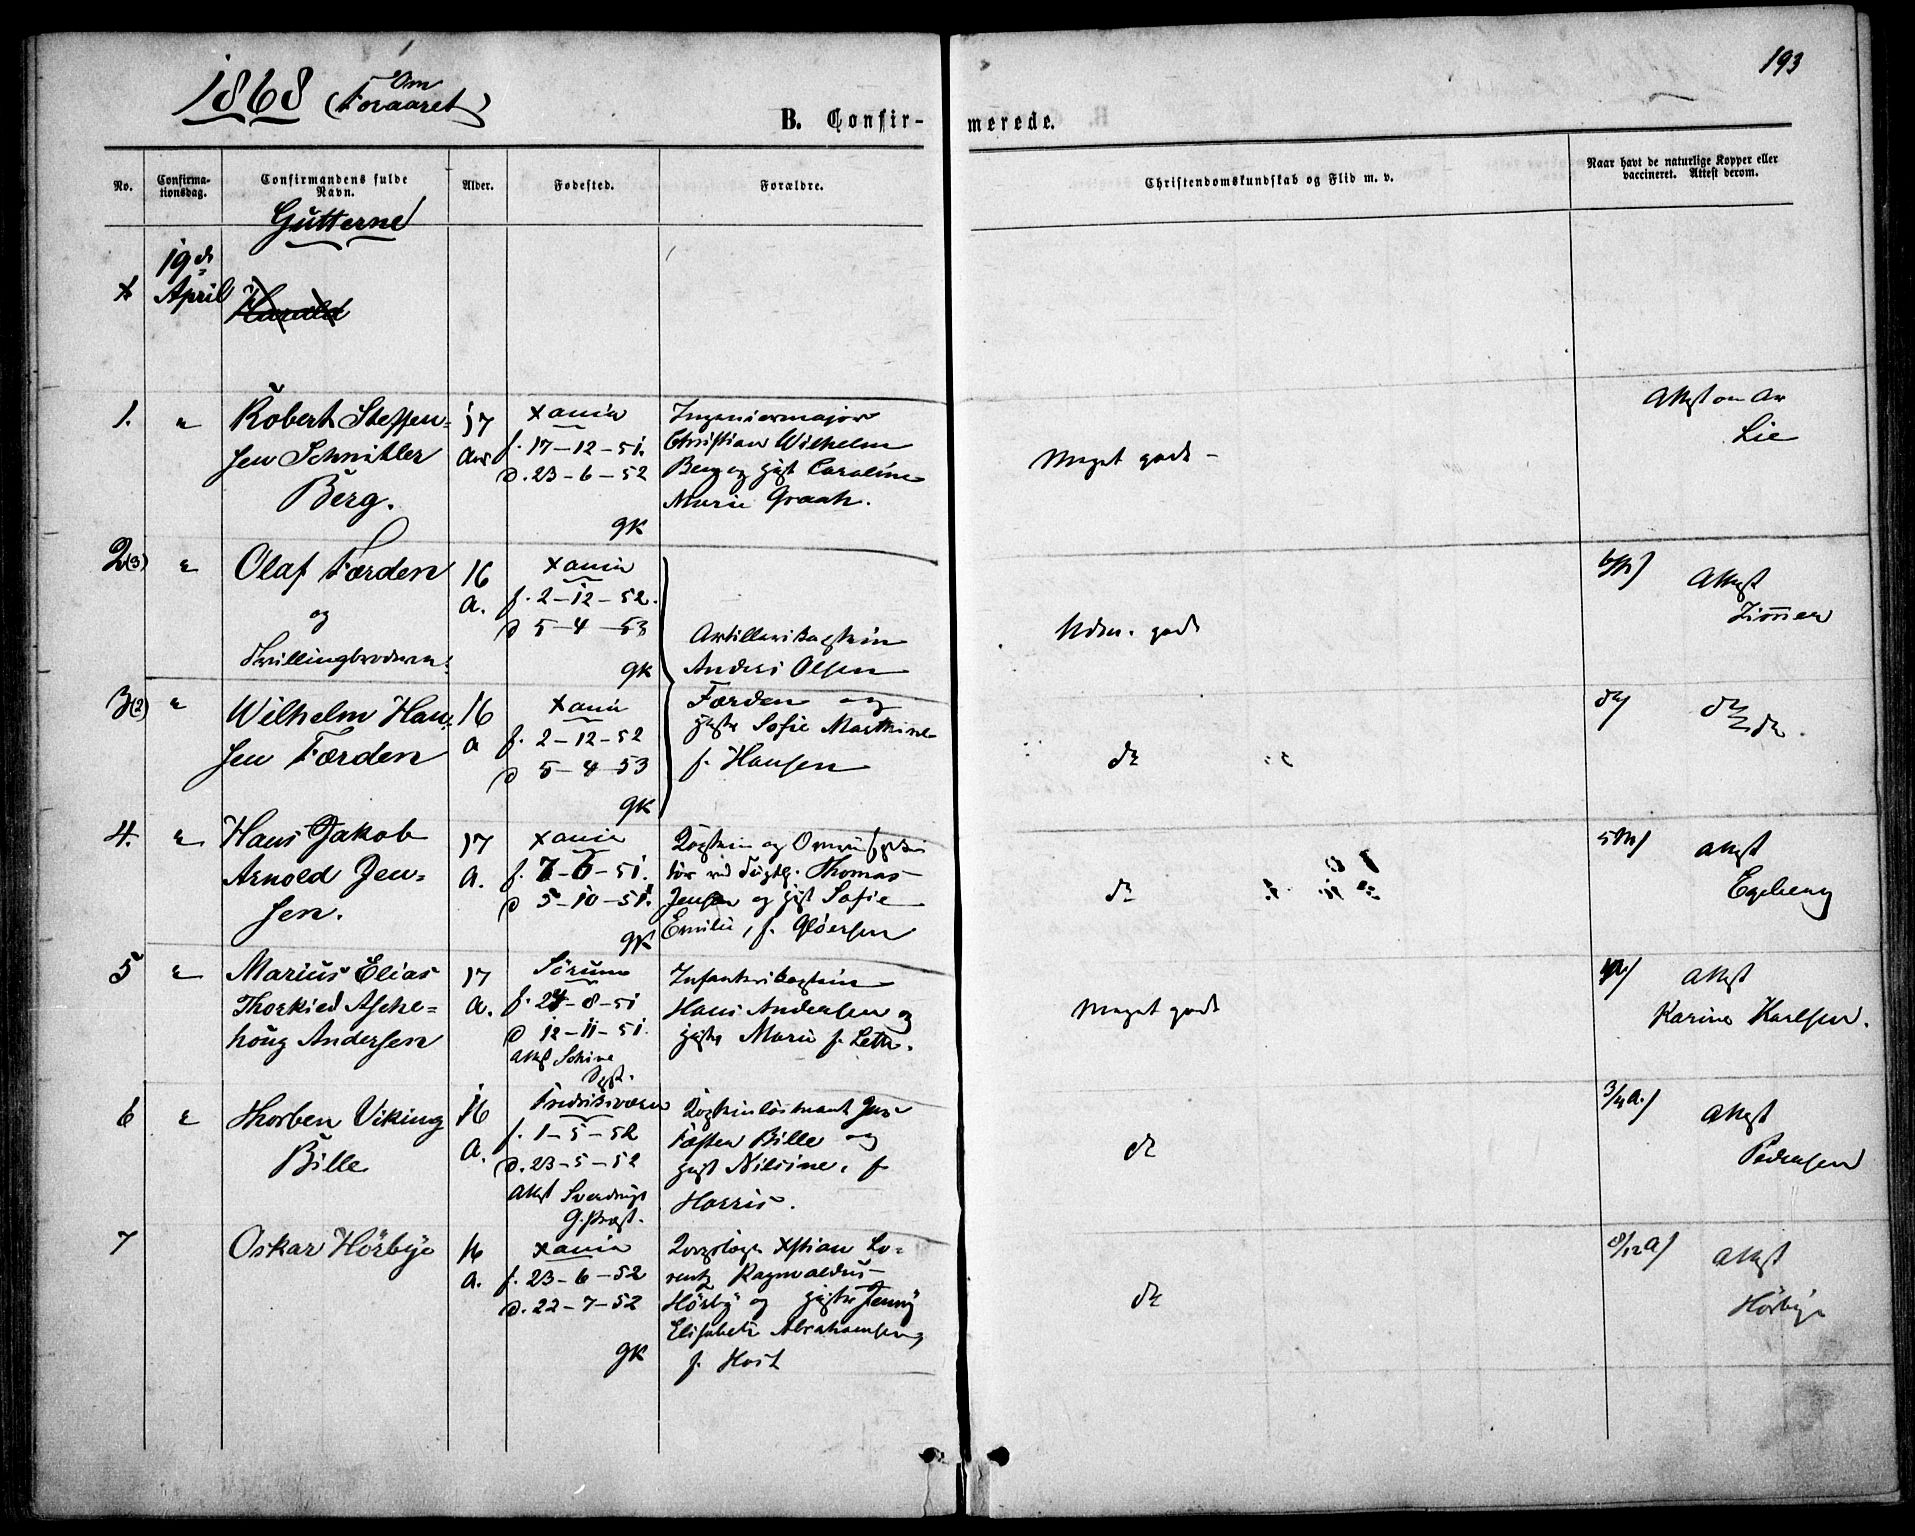 193
1868 (Om Foraaret)
B. Confir- merede.
No.
Confirma-
tionsdag.
Confirmandens fulde
Navn.
Alder.
Fødested.
Forældre.
Christendomskundskab og Flid m. v.
Naar havt de naturlige Kopper eller
vaccineret. Attest derom.
Gutterne
19de
April
Harald
1.
"
Robert Steffen-
sen Schnitler
Berg.
17
Aar
Xania
f. 17-12-51.
d. 23-6-52
gk
Ingeniermajor
Christian Wilhelm
Berg og gift Caroline
Marie Graah.
Meget godt -
Attest
Lie
2(3)
"
Olaf Færden
og
Trillingbroderen:
16
A.
Xania
f. 2-12-52.
d 5-4-53
gk
Artillerikaptein
Anders Olsen
Færden og
Sofie Marthine
f. Hansen
Udm. godt
Attest
3(2)
"
Wilhelm Han-
sen Færden
16
a
Xania
f. 2-12-52
d 5-4-53
gk
do
do
do
4.
"
Hans Jakob
Arnold Jen-
sen.
17
A.
Xania
f. 7-6-51.
d 5-10-51.
gk
Kaptein og
tør ved Thomas
Jensen og gift Sofie
Emilie, f. Gløersen
do
Attest
Egeberg
5
"
Marius Elias
Asche-
houg Andersen
17
A.
Sörum
f. 24-8-51
d 12-11-51.
Attest
Infanterikaptein
Hans Andersen og
Marie f. Leth.
Meget godt
Attest
Karine Karlsen.
6
"
Thorben Viking
Bille
16
A.
Fredriksværn
f. 1-5-52
d. 23-5-52
Attest Sverdrup
Bille og
gift Nilsine, f.
Harris.
do
3/4 A.)
Attest
Pedersen
7
Oskar Hörbye
16
A.
Xania
f. 23-6-52
d. 22-7-52
gk
Xstian Lo-
rentz Ragnvaldus
Hörby og Jenny
Elisabeth Abrahamsen,
f. Host
do
8/12 A)
Attest
Hörbye